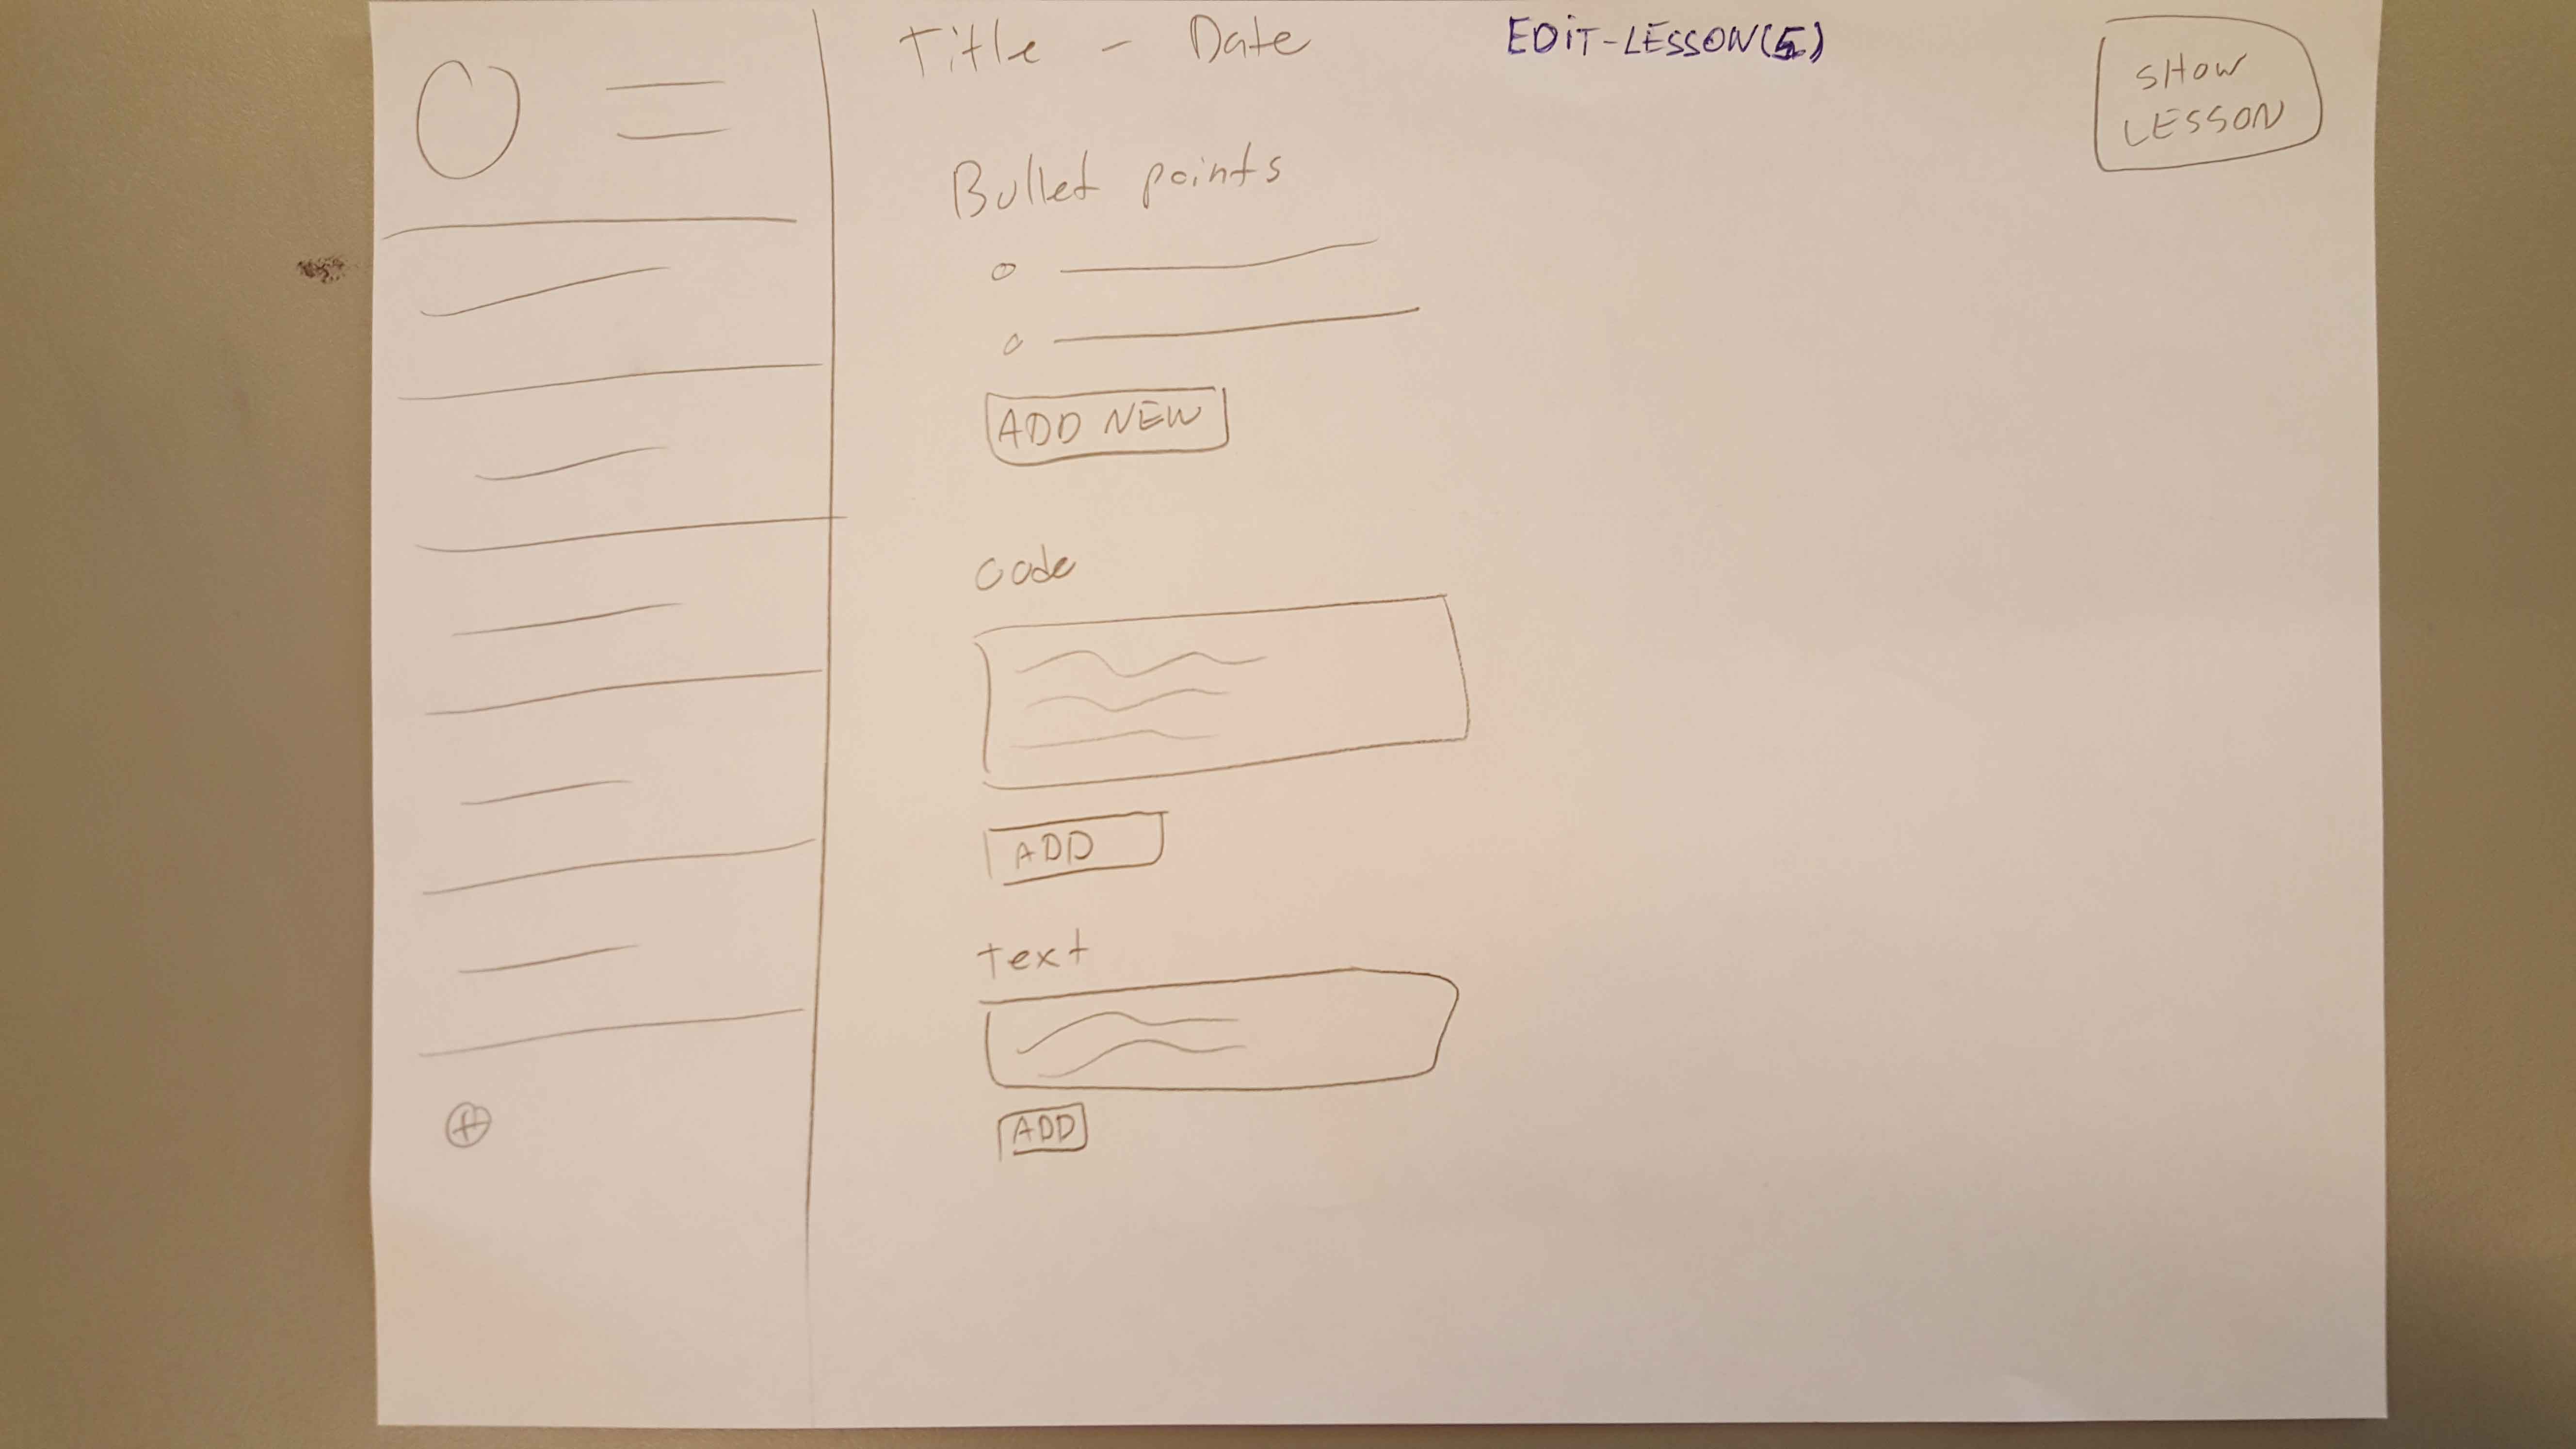 Title - Date
EDiT-LESSON(5)
SHOW
LESSON
Bullet points
ADD NEW
code
ADD
text
ADD